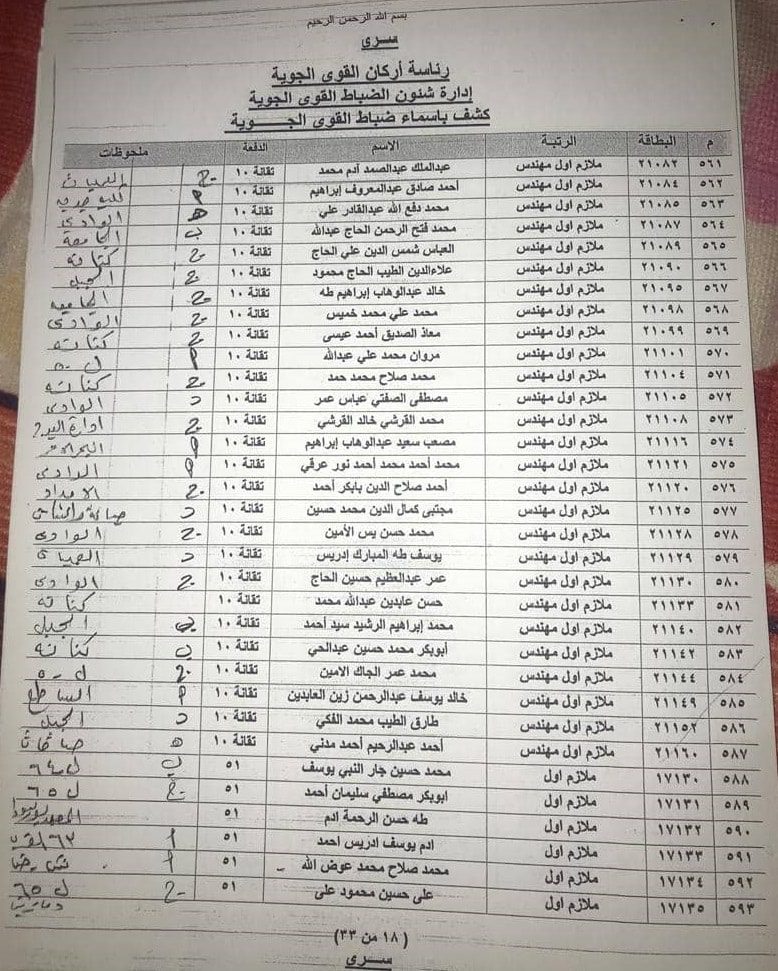 بسم الله الرحمن الرحيم
سرى
رئاسة أركان القوى الجوية
إدارة شئون الضباط القوى الجوية
كشف بأسماء ضباط القوى الجـــوية
م البطاقة الرتبة الاسم الدفعة ملحوظات
٥٦١ ٢١٠٨٢ ملازم اول مهندس عبدالملك عبدالصمد آدم محمد تقانة ١٠ ج
٥٦٢ ٢١٠٨٤ ملازم اول مهندس أحمد صادق عبدالمعروف إبراهيم تقانة ١٠ م
٥٦٣ ٢١٠٨٥ ملازم اول مهندس محمد دفع الله عبدالقادر علي تقانة ١٠ ه الوادى
٥٦٤ ٢١٠٨٧ ملازم اول مهندس محمد فتح الرحمن الحاج عبدالله تقانة ١٠ ب الجامعة
٥٦٥ ٢١٠٨٩ ملازم اول مهندس العباس شمس الدين علي الحاج تقانة ١٠ ج كنانه
٥٦٦ ٢١٠٩٠ ملازم اول مهندس علاءالدين الطيب الحاج محمود تقانة ١٠ ج الجبل
٥٦٧ ٢١٠٩٥ ملازم اول مهندس خالد عبدالوهاب إبراهيم طه تقانة ١٠ ج الجامعه
٥٦٨ ٢١٠٩٨ ملازم اول مهندس محمد علي محمد خميس تقانة ١٠ ج الوادى
٥٦٩ ٢١٠٩٩ ملازم اول مهندس معاذ الصديق أحمد عيسى تقانة ١٠ ج كنانه
٥٧٠ ٢١١٠١ ملازم اول مهندس مروان محمد علي عبدالله تقانة ١٠ م
٥٧١ ٢١١٠٤ ملازم اول مهندس محمد صلاح محمد حمد تقانة ١٠ ج كنانه
٥٧٢ ٢١١٠٥ ملازم اول مهندس مصطفى الصفتي عباس عمر تقانة ١٠ د الوادى
٥٧٣ ٢١١٠٨ ملازم اول مهندس محمد القرشي خالد القرشي تقانة ١٠ ج ادارة
٥٧٤ ٢١١١٦ ملازم اول مهندس مصعب سعيد عبدالوهاب إبراهيم تقانة ١٠ م
٥٧٥ ٢١١٢١ ملازم اول مهندس محمد أحمد محمد أحمد نور عرقي تقانة ١٠ م الوادى
٥٧٦ ٢١١٢٠ ملازم اول مهندس أحمد صلاح الدين بابكر أحمد تقانة ١٠ ج الامداد
٥٧٧ ٢١١٢٥ ملازم اول مهندس مجتبى كمال الدين محمد حسين تقانة ١٠ د
٥٧٨ ٢١١٢٨ ملازم اول مهندس محمد حسن يس الأمين تقانة ١٠ ج الوادى
٥٧٩ ٢١١٢٩ ملازم اول مهندس يوسف طه المبارك إدريس تقانة ١٠ د
٥٨٠ ٢١١٣٠ ملازم اول مهندس عمر عبدالعظيم حسين الحاج تقانة ١٠ ج الوادى
٥٨١ ٢١١٣٣ ملازم اول مهندس حسن عابدين عبدالله محمد تقانة ١٠ كنانه
٥٨٢ ٢١١٤٠ ملازم اول مهندس محمد إبراهيم الرشيد سيد أحمد تقانة ١٠ ب الجبل
٥٨٣ ٢١١٤٢ ملازم اول مهندس أبوبكر محمد حسين عبدالحي تقانة ١٠ ب كنانه
٥٨٤ ٢١١٤٤ ملازم اول مهندس محمد عمر الجاك الامين تقانة ١٠ ج
٥٨٥ ٢١١٤٩ ملازم اول مهندس خالد يوسف عبدالرحمن زين العابدين تقانة ١٠ م
٥٨٦ ٢١١٥٢ ملازم اول مهندس طارق الطيب محمد الفكي تقانة ١٠ د الجبل
٥٨٧ ٢١١٦٠ ملازم اول مهندس أحمد عبدالرحيم أحمد مدني تقانة ١٠ ه
٥٨٨ ١٧١٣٠ ملازم اول محمد حسين جار النبي يوسف ٥١ ب ل ٦٤
٥٨٩ ١٧١٣١ ملازم اول ابوبكر مصطفي سليمان أحمد ٥١ ج ل ٦٥
٥٩٠ ١٧١٣٢ ملازم اول طه حسن الرحمة ادم ٥١
٥٩١ ١٧١٣٣ ملازم اول ادم يوسف ادريس احمد ٥١ أ
٥٩٢ ١٧١٣٤ ملازم اول محمد صلاح محمد عوض الله ٥١ أ
٥٩٣ ١٧١٣٥ ملازم اول على حسين محمود على ٥١ ج ل ٦٥
( ١٨ من ٣٣)
ســرى